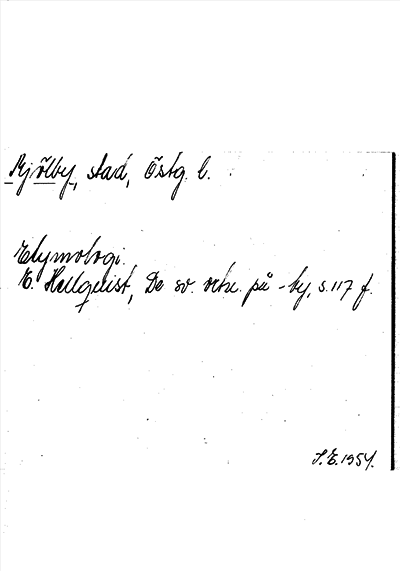 Mjölby, stad, Östg. l.
Etymologi.
E. Hellquist, De sv. ortn. på -by, s. 117 f.
S.E. 1954.